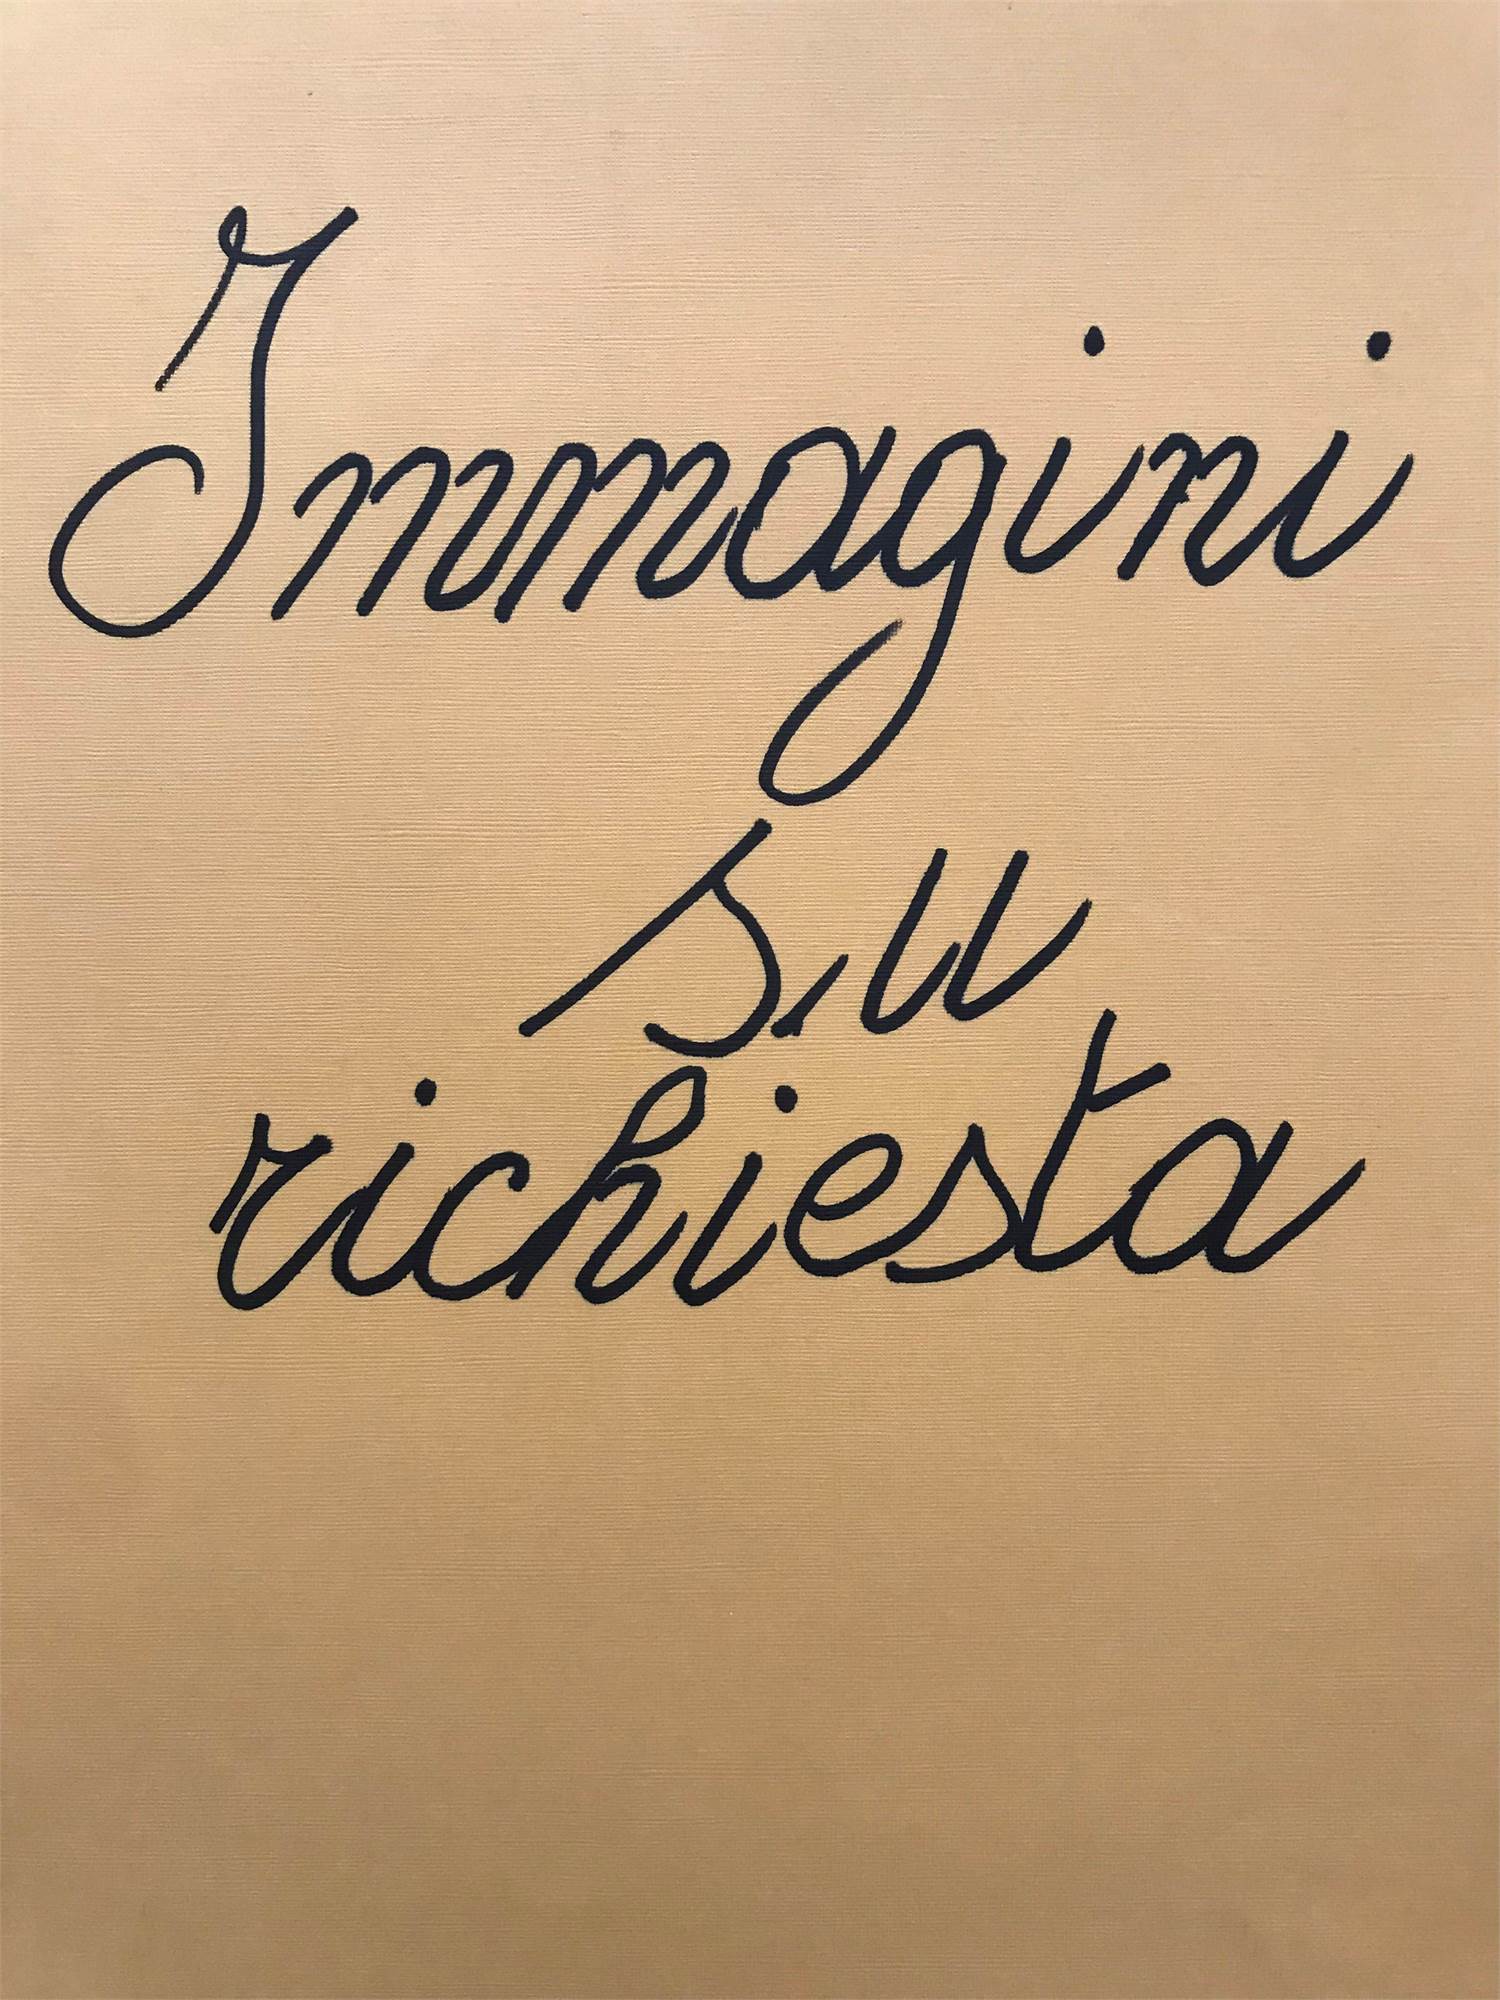 Immagini
su
richiesta